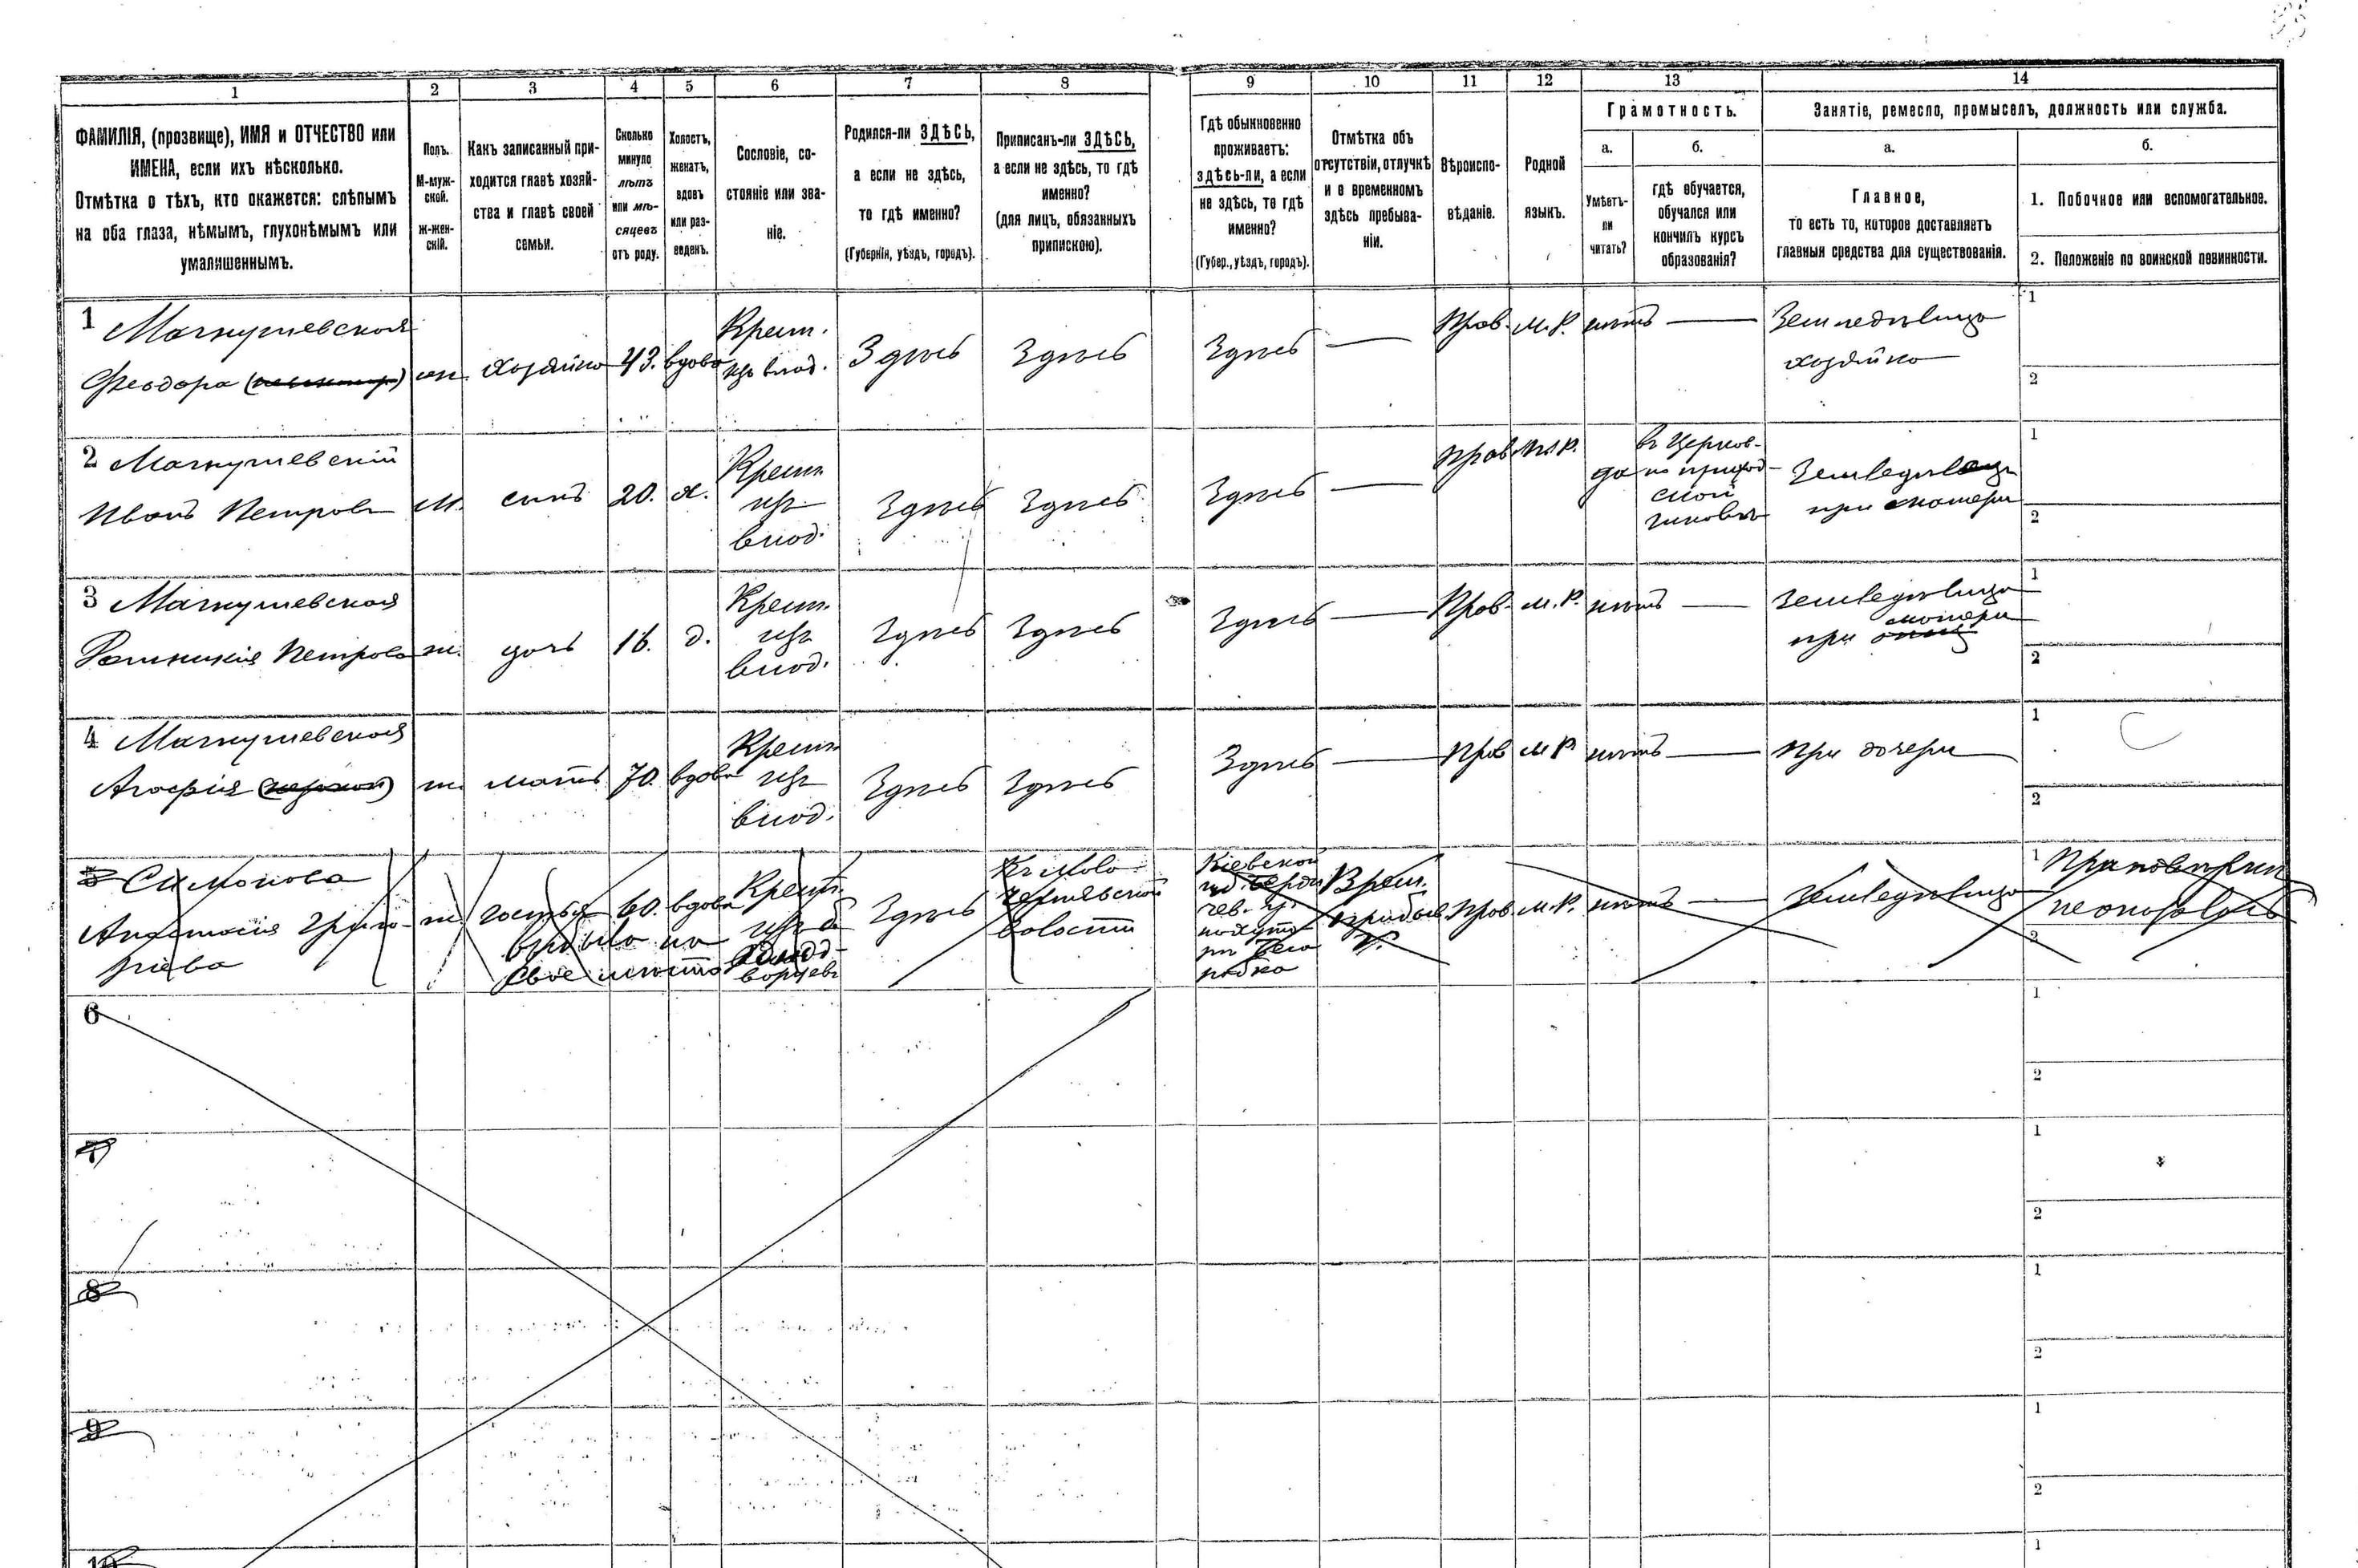 1
2
3
4
5
6
7
8
9
10
11
12
13
14
ФАМИЛІЯ, (прозвище), ИМЯ и ОТЧЕСТВО или
ИМЕНА, если ихъ нѣсколько.
Отмѣтка о тѣхъ, кто окажется: слѣпымъ
на оба глаза, нѣмымъ, глухонѣмымъ или
умалишеннымъ.
Полъ.
М-муж-
ской.
Ж-жен-
скій.
Какъ записанный при-
ходится главѣ хозяй-
ства и главѣ своей
семьи.
Сколько
минуло
лѣтъ
или мѣ-
сяцевъ
отъ роду.
Холостъ,
женатъ,
вдовъ
или раз-
веденъ.
Сословіе, со-
стояніе или зва-
ніе.
Родился-ли ЗДѢСЬ,
а если не здѣсь,
то гдѣ именно?
(Губернія, уѣздъ, городъ).
Приписанъ-ли ЗДѢСЬ,
а если не здѣсь, то гдѣ
именно?
(для лицъ, обязанныхъ
припискою).
Гдѣ обыкновенно
проживаетъ:
здѣсь-ли, а если
не здѣсь, то гдѣ
именно?
(Губер., уѣздъ, городъ).
Отмѣтка объ
отсутствіи, отлучкѣ
и о временномъ
здѣсь пребыва-
ніи.
Вѣроиспо-
вѣданіе.
Родной
языкъ.
Грамотность.
а.
Умѣетъ-
ли
читать?
б.
гдѣ обучается,
обучался или
кончилъ курсъ
образованія?
Занятіе, ремесло, промыселъ, должность или служба.
а.
Главное,
то есть то, которое доставляетъ
главныя средства для существованія.
б.
1. Побочное или вспомогательное.
2. Положеніе по воинской повинности.
1
Феодора
хозяйка
43.
вдова
Крест.
изъ влад.
Здѣсь
Здѣсь
Здѣсь
Прав.
М.Р.
нѣтъ
Земледѣлица
хозяйка
1
2
2
Иванъ Петровъ
М.
сынъ
20.
х.
Крест.
изъ
влад.
Здѣсь
Здѣсь
Здѣсь
Прав.
М.Р.
да
въ Церков-
но приход-
ской
Земледѣлецъ
при матери
1
2
3
ж.
дочь
16.
д.
Крест.
изъ
влад.
Здѣсь
Здѣсь
Здѣсь
Прав.
М.Р.
нѣтъ
Земледѣлица
при матери
1
2
4
Агафія
ж.
мать
70.
вдова
Крест.
изъ
влад.
Здѣсь
Здѣсь
Здѣсь
Прав.
М.Р.
нѣтъ
При дочери
1
2
5 Симонова
Анастасія Григо-
рьева
ж.
гостья
60.
вдова
Крест.
изъ
Здѣсь
волости
Кіевской
Врем.
Прав.
М.Р.
нѣтъ
Земледѣлица
выбыла на
свое мѣсто
1 При повѣркѣ
не оказалось
2
6
1
2
7
1
2
8
1
2
9
1
2
10
1